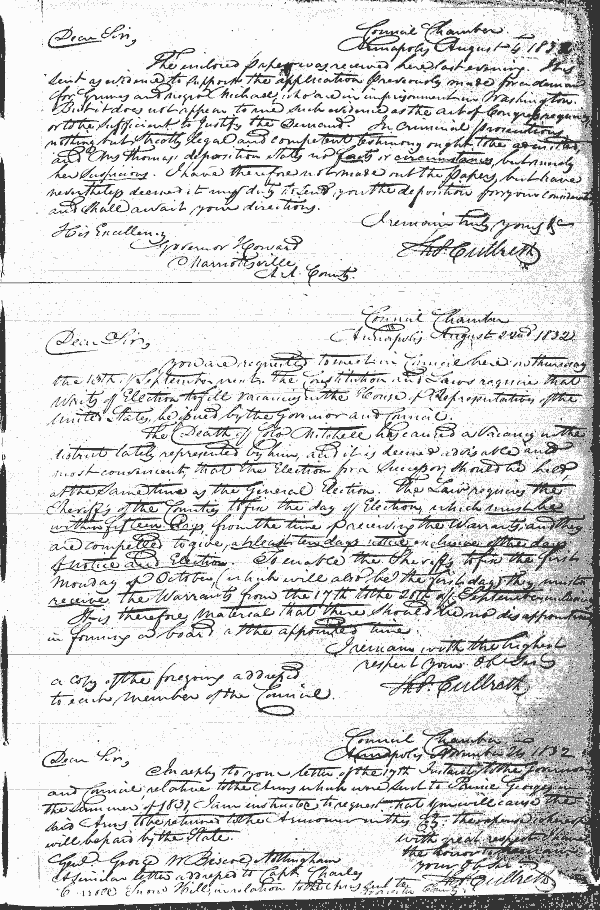 Dear Sir,
Council Chamber
Annapolis August 4 1832
The enclosed Paper was received here last evening. It is
sent as evidence to support the application previously made for a demand
for Grimes and negro Michael, who are in imprisonment in Washington.
But it does not appear to me such evidence as the act of Congress requires
or to be sufficient to justify the Demand. In Criminal prosecutions
nothing but strictly legal and competent testimony ought to be admitted,
and Mrs Thomas' deposition states no facts or circumstances, but merely
her suspicions. I have therefore not made out the Papers, but have
nevertheless deemed it my duty to send you the deposition for your consideration
and shall await your directions.
I remain truly yours &c
His Excellency
Thos. Culbreth
Governor Howard
Marriottsville
A.A. County.
Council Chamber
Annapolis August 22nd 1832
Dear Sir,
you are requested to meet in Council here on thursday
the 13th of September next. The Constitution and Laws require that
Writs of Election to fill vacancies in the House of Representatives of the
United States, be issued by the Governor and Council.
The Death of Geo Mitchell has caused a vacancy in the
district lately represented by him, and it is deemed advisable and
most convenient, that the Election for a Successor should be held
at the same time as the General Election. The Law requires the
Sheriffs of the Counties to fix the day of Election, which must be
within fifteen Days from the time of receiving the Warrants, and they
are compelled to give, at least ten days notice exclusive of the days
of notice and Election. To enable the Sheriffs to fix the first
Monday of October, (which will also be the first day) they must
receive the Warrants from the 17th to the 20th of September inclusive
It is therefore material that there should be no disappointment
in forming a board at the appointed time.
I remain, with the highest
respect your Obt. Servt.
a copy of the foregoing addressed
Thos. Culbreth
to each member of the Council.
Council Chamber
Annapolis November 24 1832
Dear Sir,
In reply to your letter of the 17th Instant to the Governor
and Council relative to the Arms which were sent to Prince George's in
the Summer of 1831, I am instructed to request that you will cause the
said Arms to be returned to the Armourer in this City. the expense thereof
will be paid by the State.
with great respect I have
the honor to be
Genl. George W Biscoe, Nottingham
your Obt. St.
a similar letter addressed to Capt. Charles
Thos. Culbreth
Snow Hill, in relation to the Arms sent to Worcester County